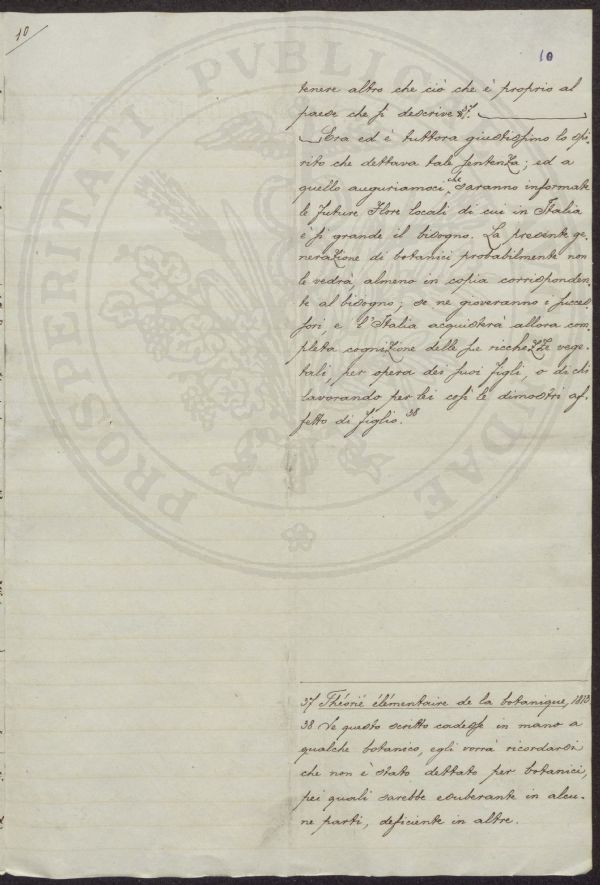 10
10
tenere altro che ciò che è proprio al
paese che si descrive 37.
Era ed è tuttora giustissimo lo spi-
rito che dettava tale sentenza; ed a
quello auguriamoci che saranno informate
le future Flore locali di cui in Italia
è sì grande il bisogno. La presente ge-
nerazione di botanici probabilmente non
le vedrà, almeno in copia corrisponden-
te al bisogno; se ne gioveranno i succes-
sori e l'Italia acquisterà allora com-
pleta cognizione delle sue ricchezze vege-
tali, per opera dei suoi figli, o di chi
lavorando per lei così le dimostri af-
fetto di figlio. 38
37 Théorié élémentaire de la botanique, 1813
38 Se questo scritto cadesse in mano a
qualche botanico, egli vorrà ricordarsi
che non è stato dettato per botanici,
pei quali sarebbe esuberante in alcu-
ne parti, deficiente in altre.
PROSPERITATI PVBLICAE